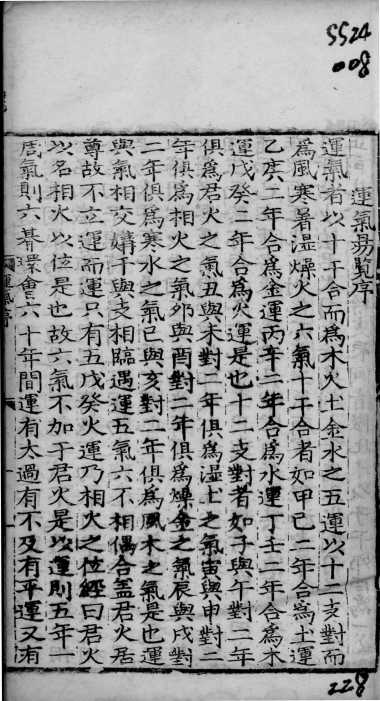 5524
008
運氣易覽序
運氣者以十干合而為木火土金水之五運以十二支對而
為風寒暑濕燥火之六氣十干合者如甲己二年合為土運
乙庚二年合為金運丙辛二年合為水運丁壬二年合為木
運戊癸二年合為火運是也十二支對者如子與午對二年
俱為君火之氣丑與未對二年俱為濕土之氣寅與申對二
年俱為相火之氣夘與酉對二年俱為燥金之氣辰與戌對
二年俱為寒水之氣巳與亥對二年俱為風木之氣是也運
與氣相交媾干與支相臨遇運五氣六不相偶合盖君火居
尊故不立運而運只有五戊癸火運乃相火之位經曰君火
以名相火以位是也故六氣不加于君火是以運則五年一
周氣則六朞環會六十年間運有太過有不及有平運又有
運氣序
228